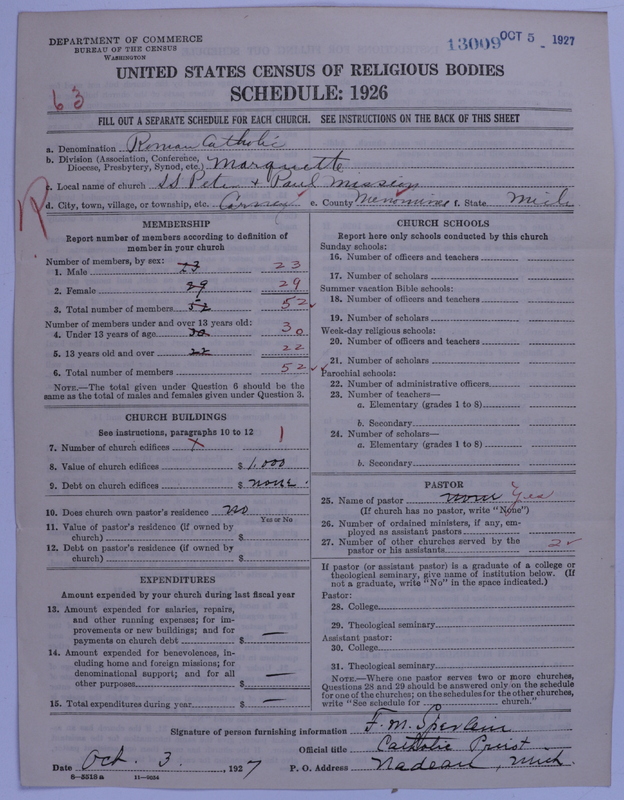 DEPARTMENT OF COMMERCE
BUREAU OF THE CENSUS
WASHINGTON
13009 OCT 5 - 1927
UNITED STATES CENSUS OF RELIGIOUS BODIES
SCHEDULE: 1926
63
FILL OUT A SEPARATE SCHEDULE FOR EACH CHURCH. SEE INSTRUCTIONS ON THE BACK OF THIS SHEET
a. Denomination Roman Catholic
b. Division (Association, Conference, Diocese, Presbytery, Synod, etc.) Marquette
c. Local name of church SS Peter & Paul Mission
d. City, town, village, or township, etc. Carney e. County Menominee f. State Mich
R
MEMBERSHIP
Report number of members according to definition of
member in your church
Number of members, by sex:
1. Male 23 23
2. Female 29 29
3. Total number of members 52 52
Number of members under and over 13 years old:
4. Under 13 years of age 30 30
5. 13 years old and over 22 22
6. Total number of members 52
NOTE.—The total given under Question 6 should be the
same as the total of males and females given under Question 3.
CHURCH BUILDINGS
See instructions, paragraphs 10 to 12
7. Number of church edifices x 1
8. Value of church edifices $ 1,000
9. Debt on church edifices $ none
10. Does church own pastor's residence no
Yes or No
11. Value of pastor's residence (if owned by
church) $
12. Debt on pastor's residence (if owned by
church) $
EXPENDITURES
Amount expended by your church during last fiscal year
13. Amount expended for salaries, repairs,
and other running expenses; for im-
provements or new buildings; and for
payments on church debt $ —
14. Amount expended for benevolences, in-
cluding home and foreign missions; for
denominational support; and for all
other purposes $ —
15. Total expenditures during year $ —
CHURCH SCHOOLS
Report here only schools conducted by this church
Sunday schools:
16. Number of officers and teachers
17. Number of scholars
Summer vacation Bible schools:
18. Number of officers and teachers
19. Number of scholars
Week-day religious schools:
20. Number of officers and teachers
21. Number of scholars
Parochial schools:
22. Number of administrative officers
23. Number of teachers—
a. Elementary (grades 1 to 8)
b. Secondary
24. Number of scholars—
a. Elementary (grades 1 to 8)
b. Secondary
PASTOR
25. Name of pastor none Yes
(If church has no pastor, write "None")
26. Number of ordained ministers, if any, em-
ployed as assistant pastors
27. Number of other churches served by the
pastor or his assistants 2
If pastor (or assistant pastor) is a graduate of a college or
theological seminary, give name of institution below. (If
not a graduate, write "No" in the space indicated.)
Pastor:
28. College
29. Theological seminary
Assistant pastor:
30. College
31. Theological seminary
NOTE.—Where one pastor serves two or more churches,
Questions 28 and 29 should be answered only on the schedule
for one of the churches; on the schedules for the other churches,
write "See schedule for church."
Signature of person furnishing information F. M. Sperlein
Official title Catholic Priest
Date Oct. 3, 1927 P. O. Address Nadeau, Mich
8—5518 a 11—9054